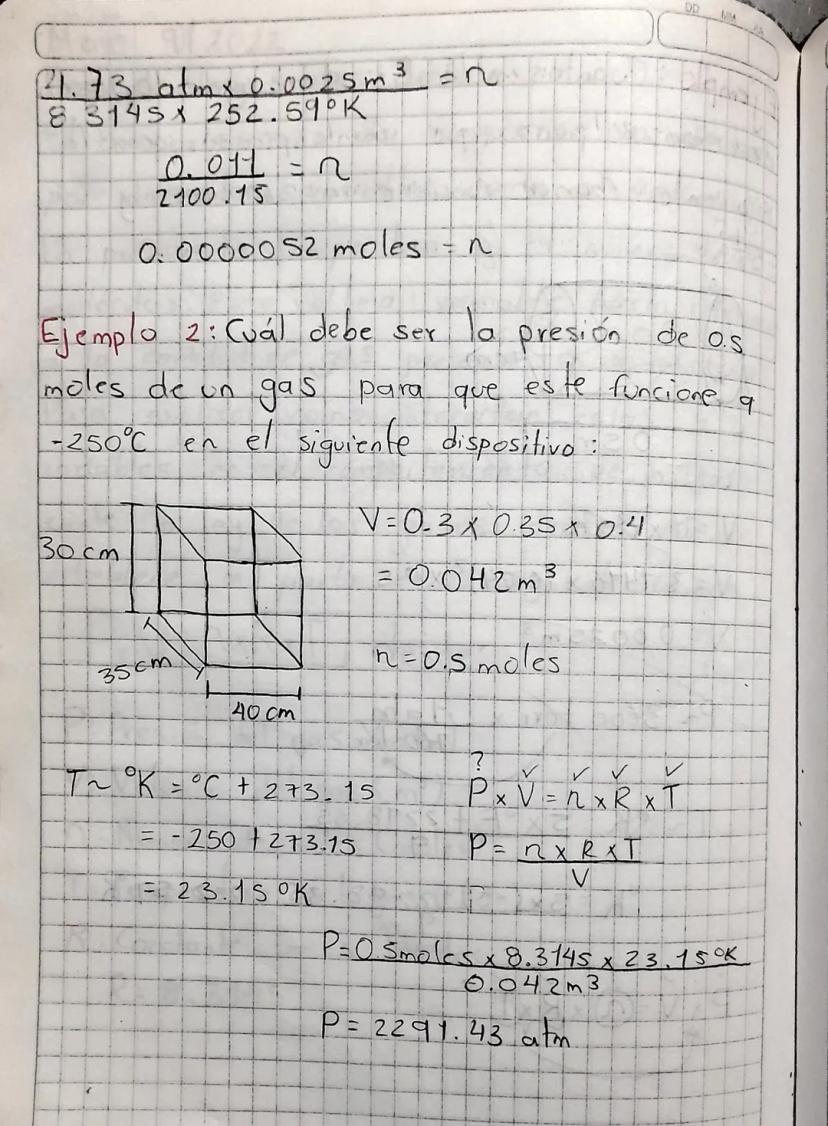 DD MM AA
4.73 atm x 0.0025m³ = n
8.3145 x 252.59°K
0.011 = n
2100.15
0.0000052 moles = n
Ejemplo 2: Cuál debe ser la presión de 0.5
moles de un gas para que este funcione a
-250°C en el siguiente dispositivo:
30 cm
35 cm
40 cm
V = 0.3 x 0.35 x 0.4
= 0.042 m³
n = 0.5 moles
T ~ °K = °C + 273.15
= -250 + 273.15
= 23.15 °K
? ✓ ✓ ✓ ✓
P x V = n x R x T
P = n x R x T
V
P = 0.5 moles x 8.3145 x 23.15 °K
0.042 m³
P = 2291.43 atm